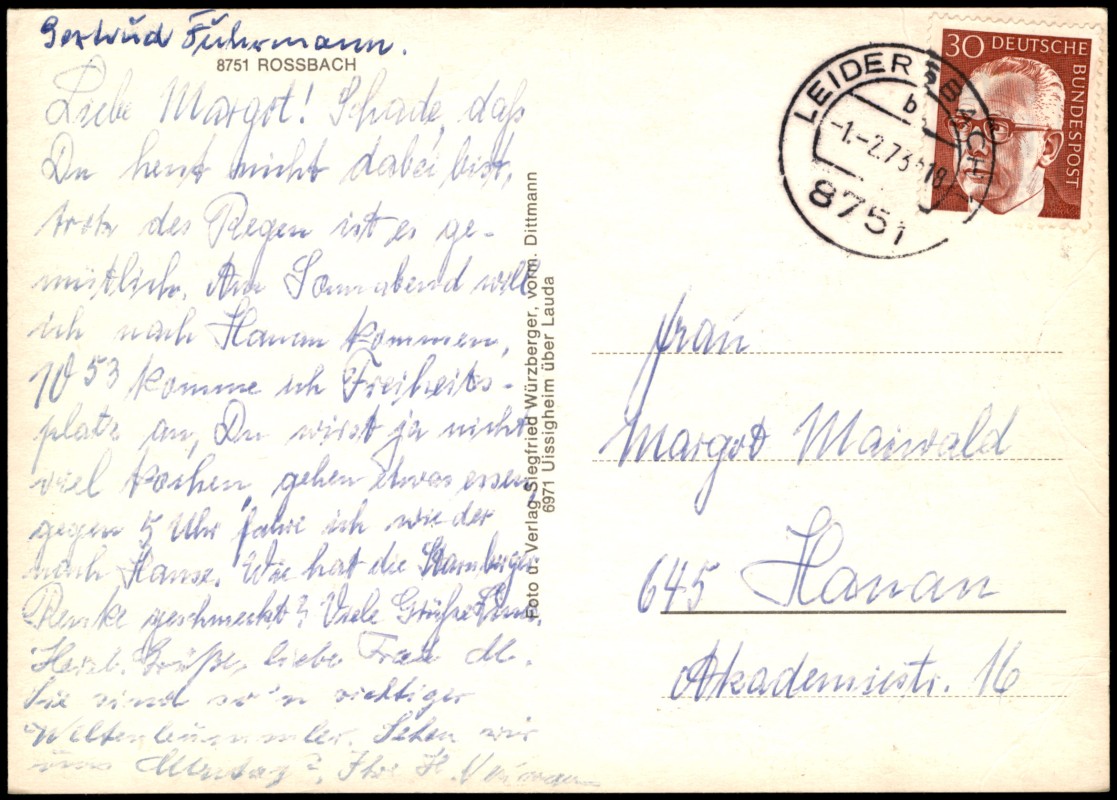 Gertrud Fuhrmann.
8751 ROSSBACH
Liebe Margot! Schade, daß
Du heut nicht dabei bist,
trotz des Regen ist es ge-
mütlich. Am Sonnabend will
ich nach Hanau kommen,
10 53 komme ich Freiheits-
platz an, Du wirst ja nicht
viel kochen, gehen etwas essen,
gegen 5 Uhr fahre ich wieder
nach Hause. Wie hat die
Renke geschmeckt? Viele Grüße
Herzl. Grüße, liebe Frau M.
Sie sind so'n richtiger
Weltenbummler. Sehen wir
uns Montag? Ihre H.
Foto u. Verlag Siegfried Würzberger, vorm. Dittmann
6971 Uissigheim über Lauda
30 DEUTSCHE
BUNDESPOST
LEIDERSBACH
b
-1.-2.73-18
8751
Frau
Margot Maiwald
645 Hanau
Akademiestr. 16